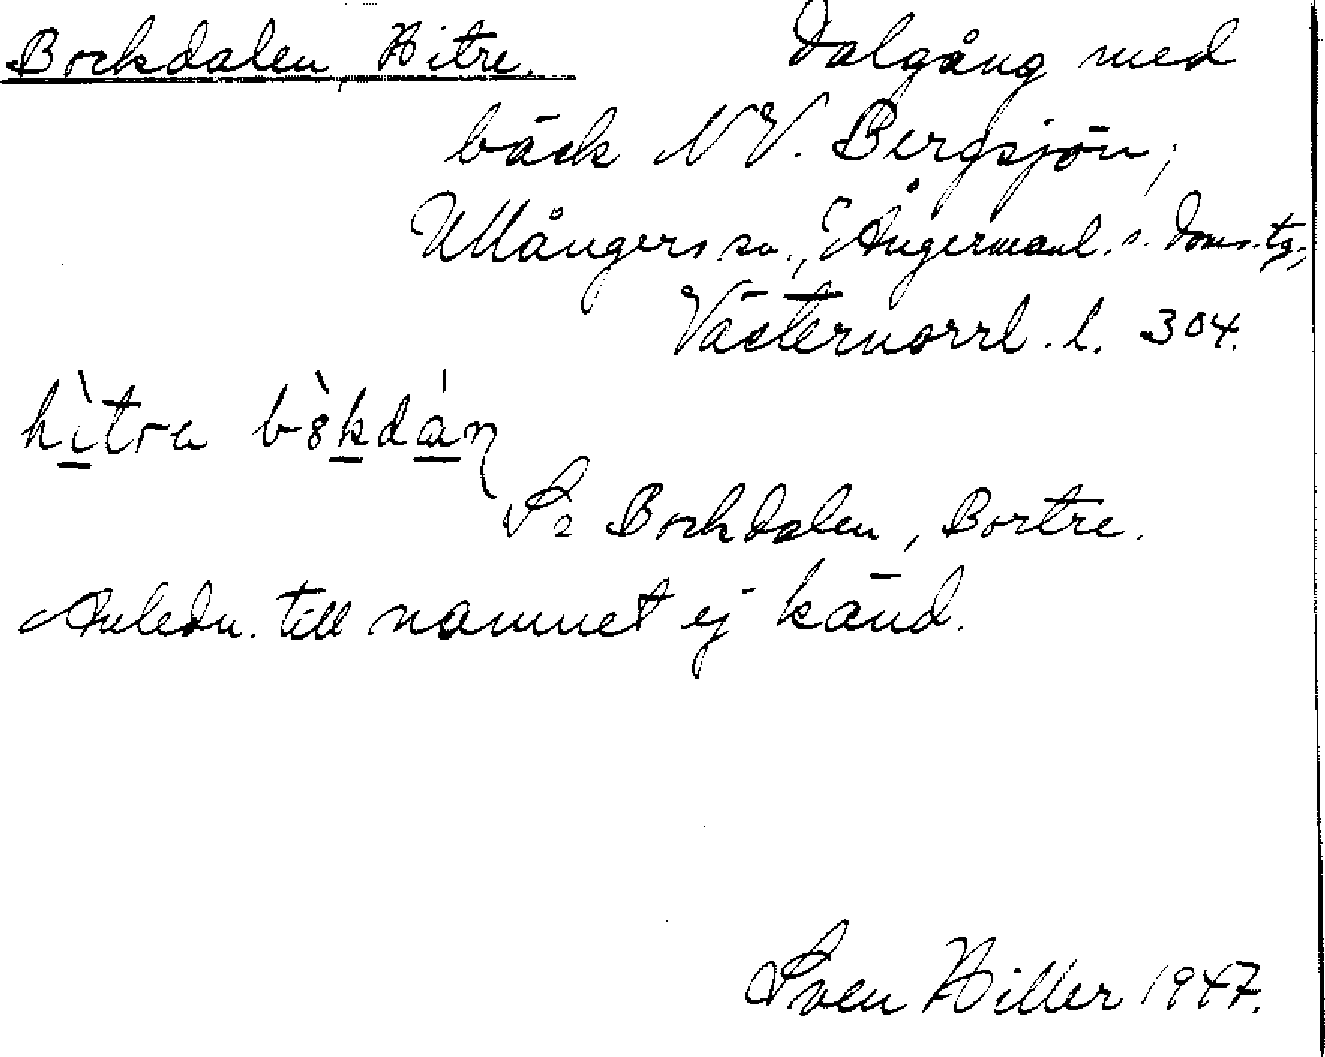 Bockdalen, Hitre. Dalgång med
bäck NV. Bergsjön,
Ullångers sn., Ångermanl. s. Doms.tg.,
Västernorrl. l. 304.
hìtra bòkdán
Se Bockdalen, Bortre.
Anledn. till namnet ej känd.
Sven Hiller 1947.